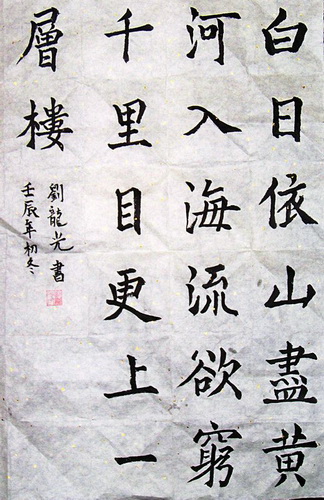 白日依山盡黄
河入海流欲窮
千里目更上一
層樓
劉龍光書
壬辰年初冬